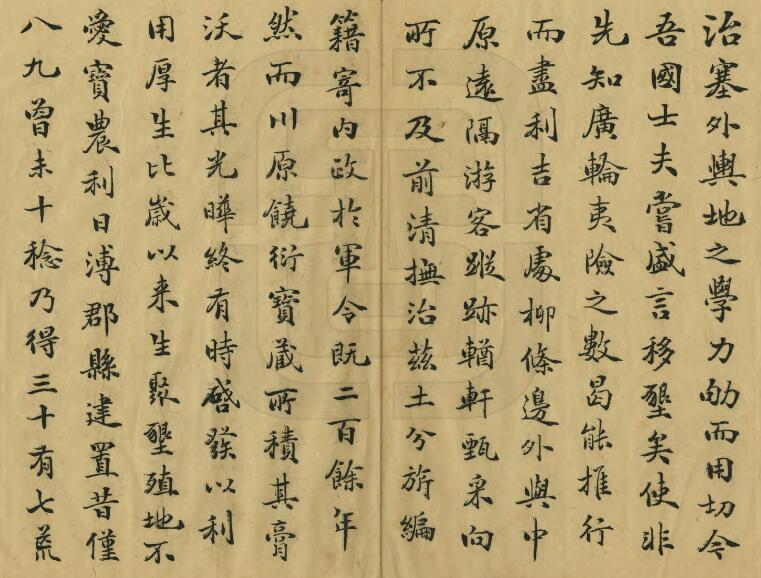 治塞外輿地之學力劬而用切今
吾國士夫嘗盛言移墾矣使非
先知廣輪夷險之數曷能推行
而盡利吉省處柳條邊外與中
原遠隔游客蹤跡輶軒甄采向
所不及前清撫治茲土分旂編
籍寄內政於軍令既二百餘年
然而川原饒衍寶藏所積其膏
沃者其光曄終有時啓發以利
用厚生比嵗以来生聚墾殖地不
愛寶農利日溥郡縣建置昔僅
八九曾未十稔乃得三十有七荒